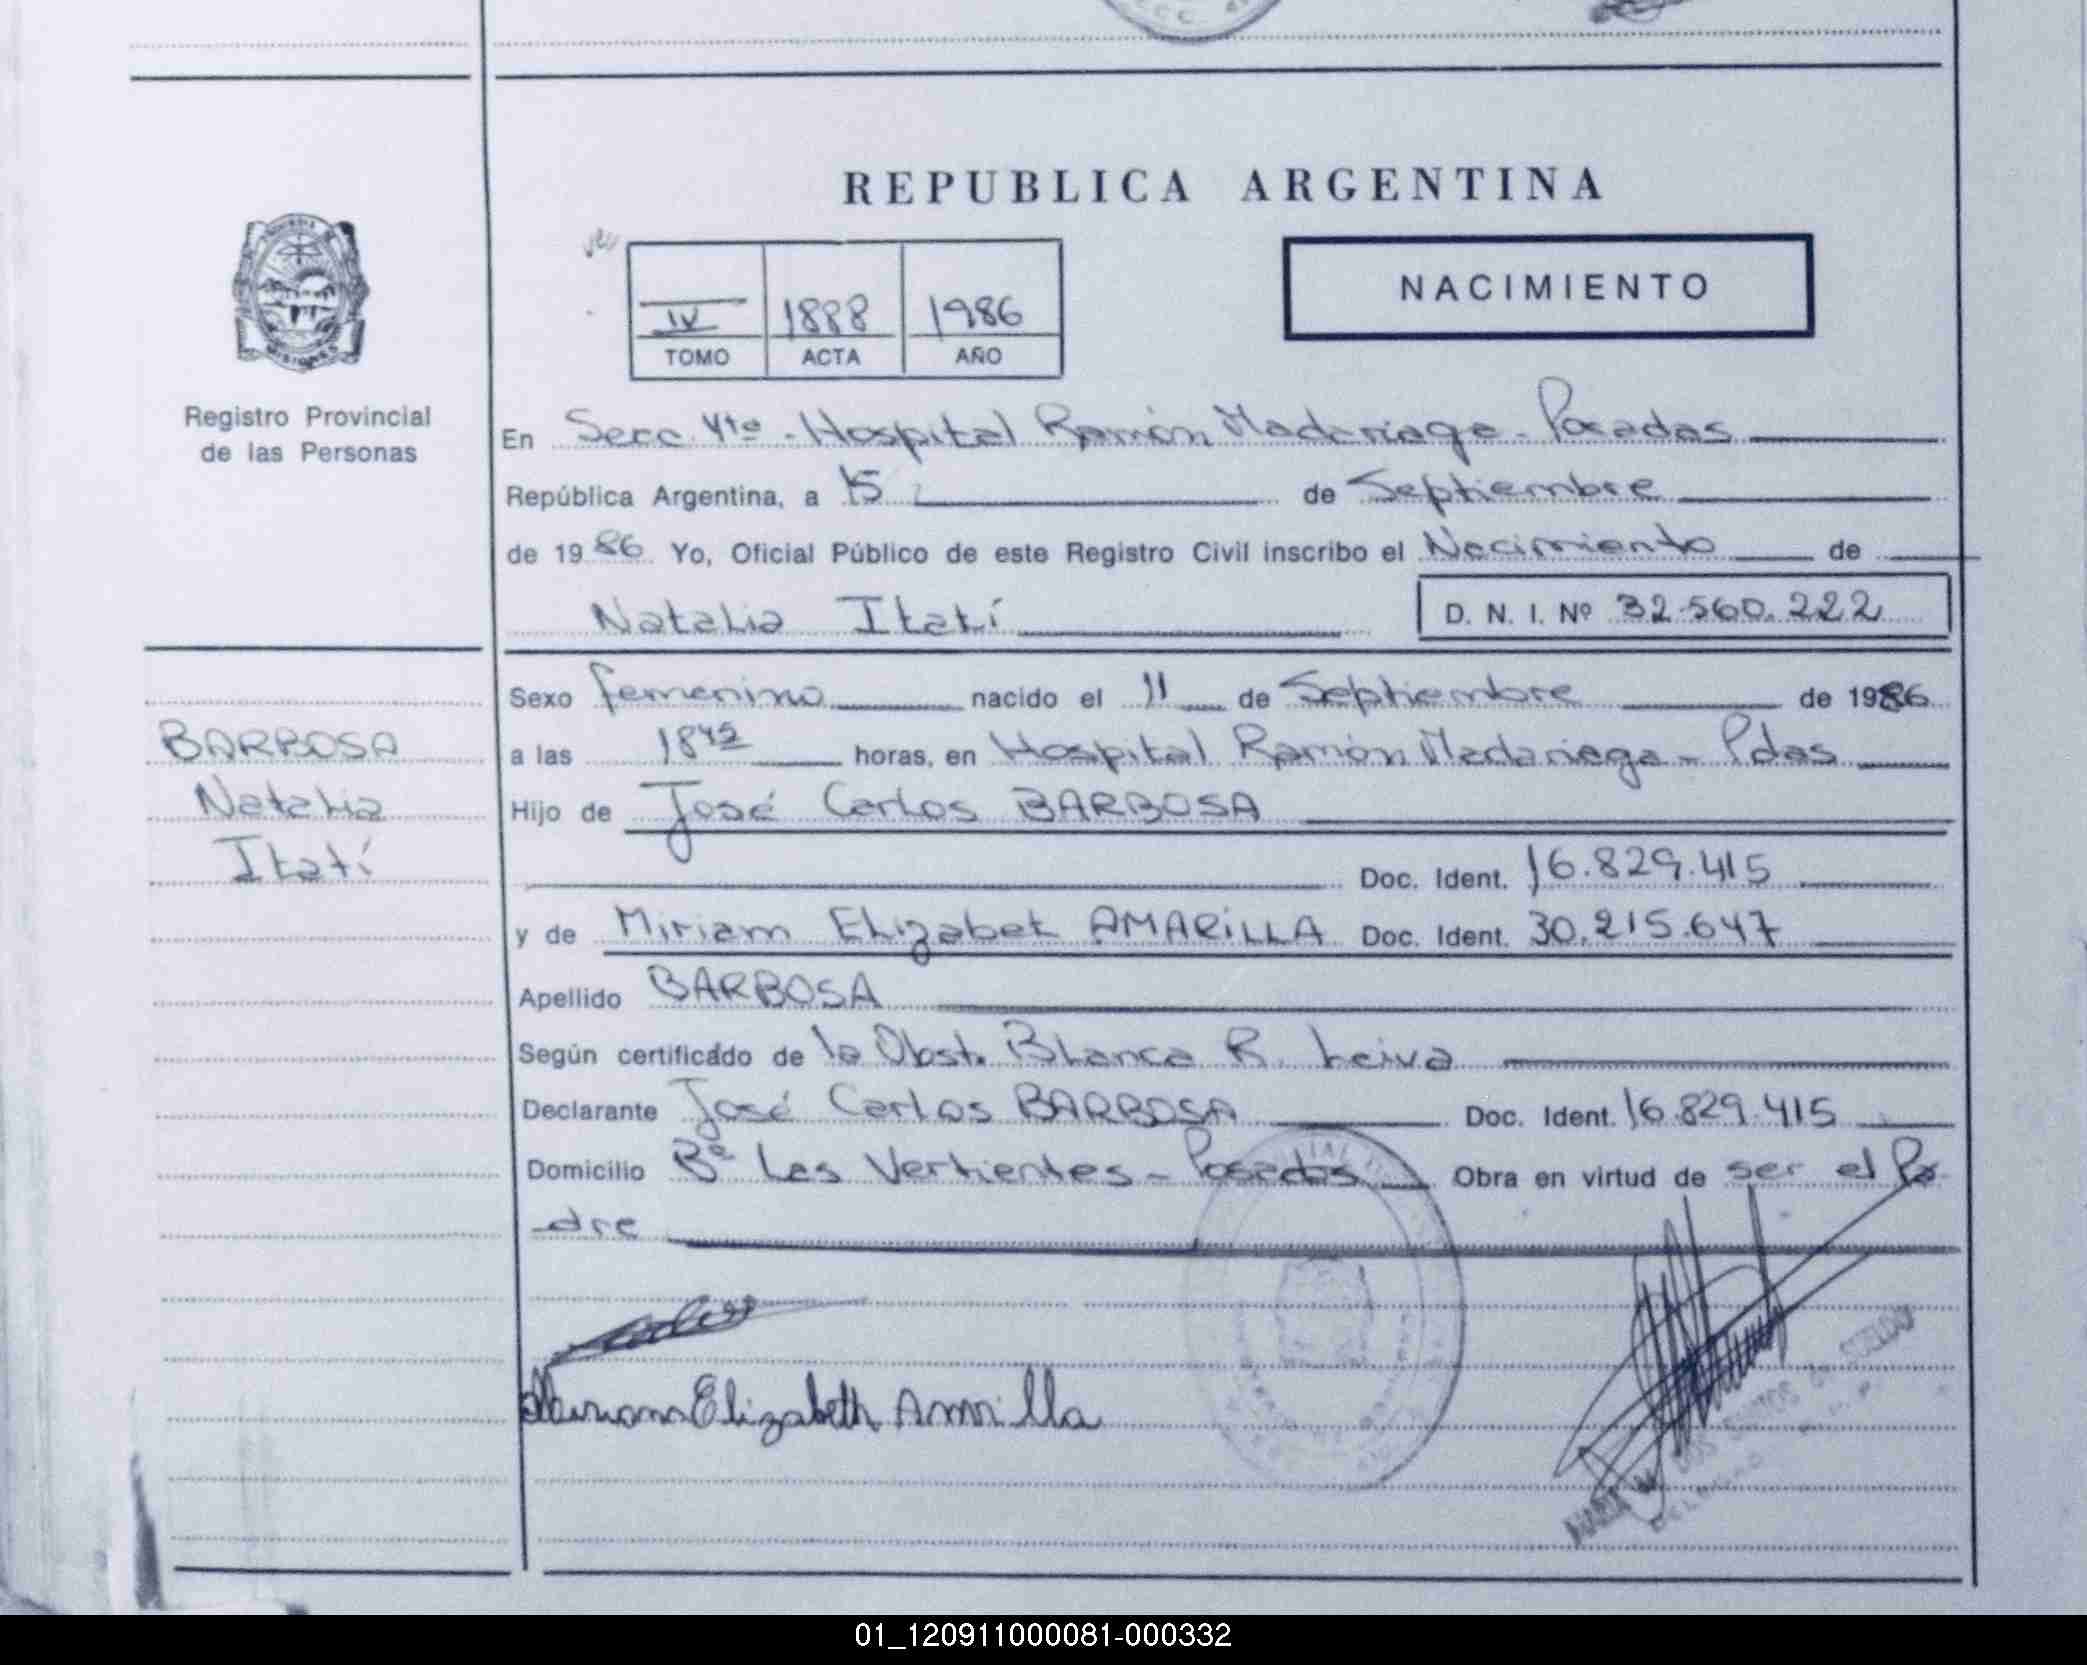 REPUBLICA ARGENTINA
NACIMIENTO
IV 1888 1986
TOMO ACTA AÑO
MISIONES
Registro Provincial
de las Personas
En Secc 4ta - Hospital Ramón Madariaga - Posadas
República Argentina, a 15 de Septiembre
de 1986 Yo, Oficial Público de este Registro Civil inscribo el Nacimiento de
Natalia Itatí D. N. I. Nº 32.560.222
BARBOSA
Natalia
Itatí
Sexo femenino nacido el 11 de Septiembre de 1986
a las 18 45 horas, en Hospital Ramón Madariaga - Pdas
Hijo de José Carlos BARBOSA
Doc. Ident. 16.829.415
y de Miriam Elizabet AMARILLA Doc. Ident. 30.215.647
Apellido BARBOSA
Según certificado de la Obst. Blanca R. Leiva
Declarante José Carlos BARBOSA Doc. Ident. 16.829.415
Domicilio Bº Las Vertientes - Posadas Obra en virtud de ser el Pa
dre
Elizabeth Amarilla
MARIA DOS SANTOS de
01_120911000081-000332